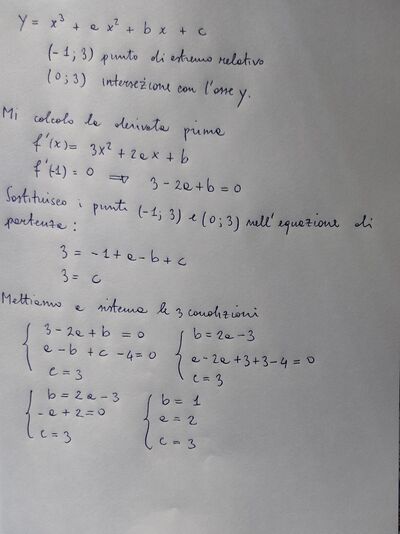 y = x³ + a x² + b x + c
(-1; 3) punto di estremo relativo
(0; 3) intersezione con l'asse y.
Mi calcolo la derivata prima
f'(x) = 3x² + 2ax + b
f'(-1) = 0 ⟹ 3 - 2a + b = 0
Sostituisco i punti (-1; 3) e (0; 3) nell'equazione di
partenza:
3 = -1 + a - b + c
3 = c
Mettiamo a sistema le 3 condizioni
{ 3 - 2a + b = 0 { b = 2a - 3
a - b + c - 4 = 0 a - 2a + 3 + 3 - 4 = 0
c = 3 c = 3
{ b = 2a - 3 { b = 1
-a + 2 = 0 a = 2
c = 3 c = 3